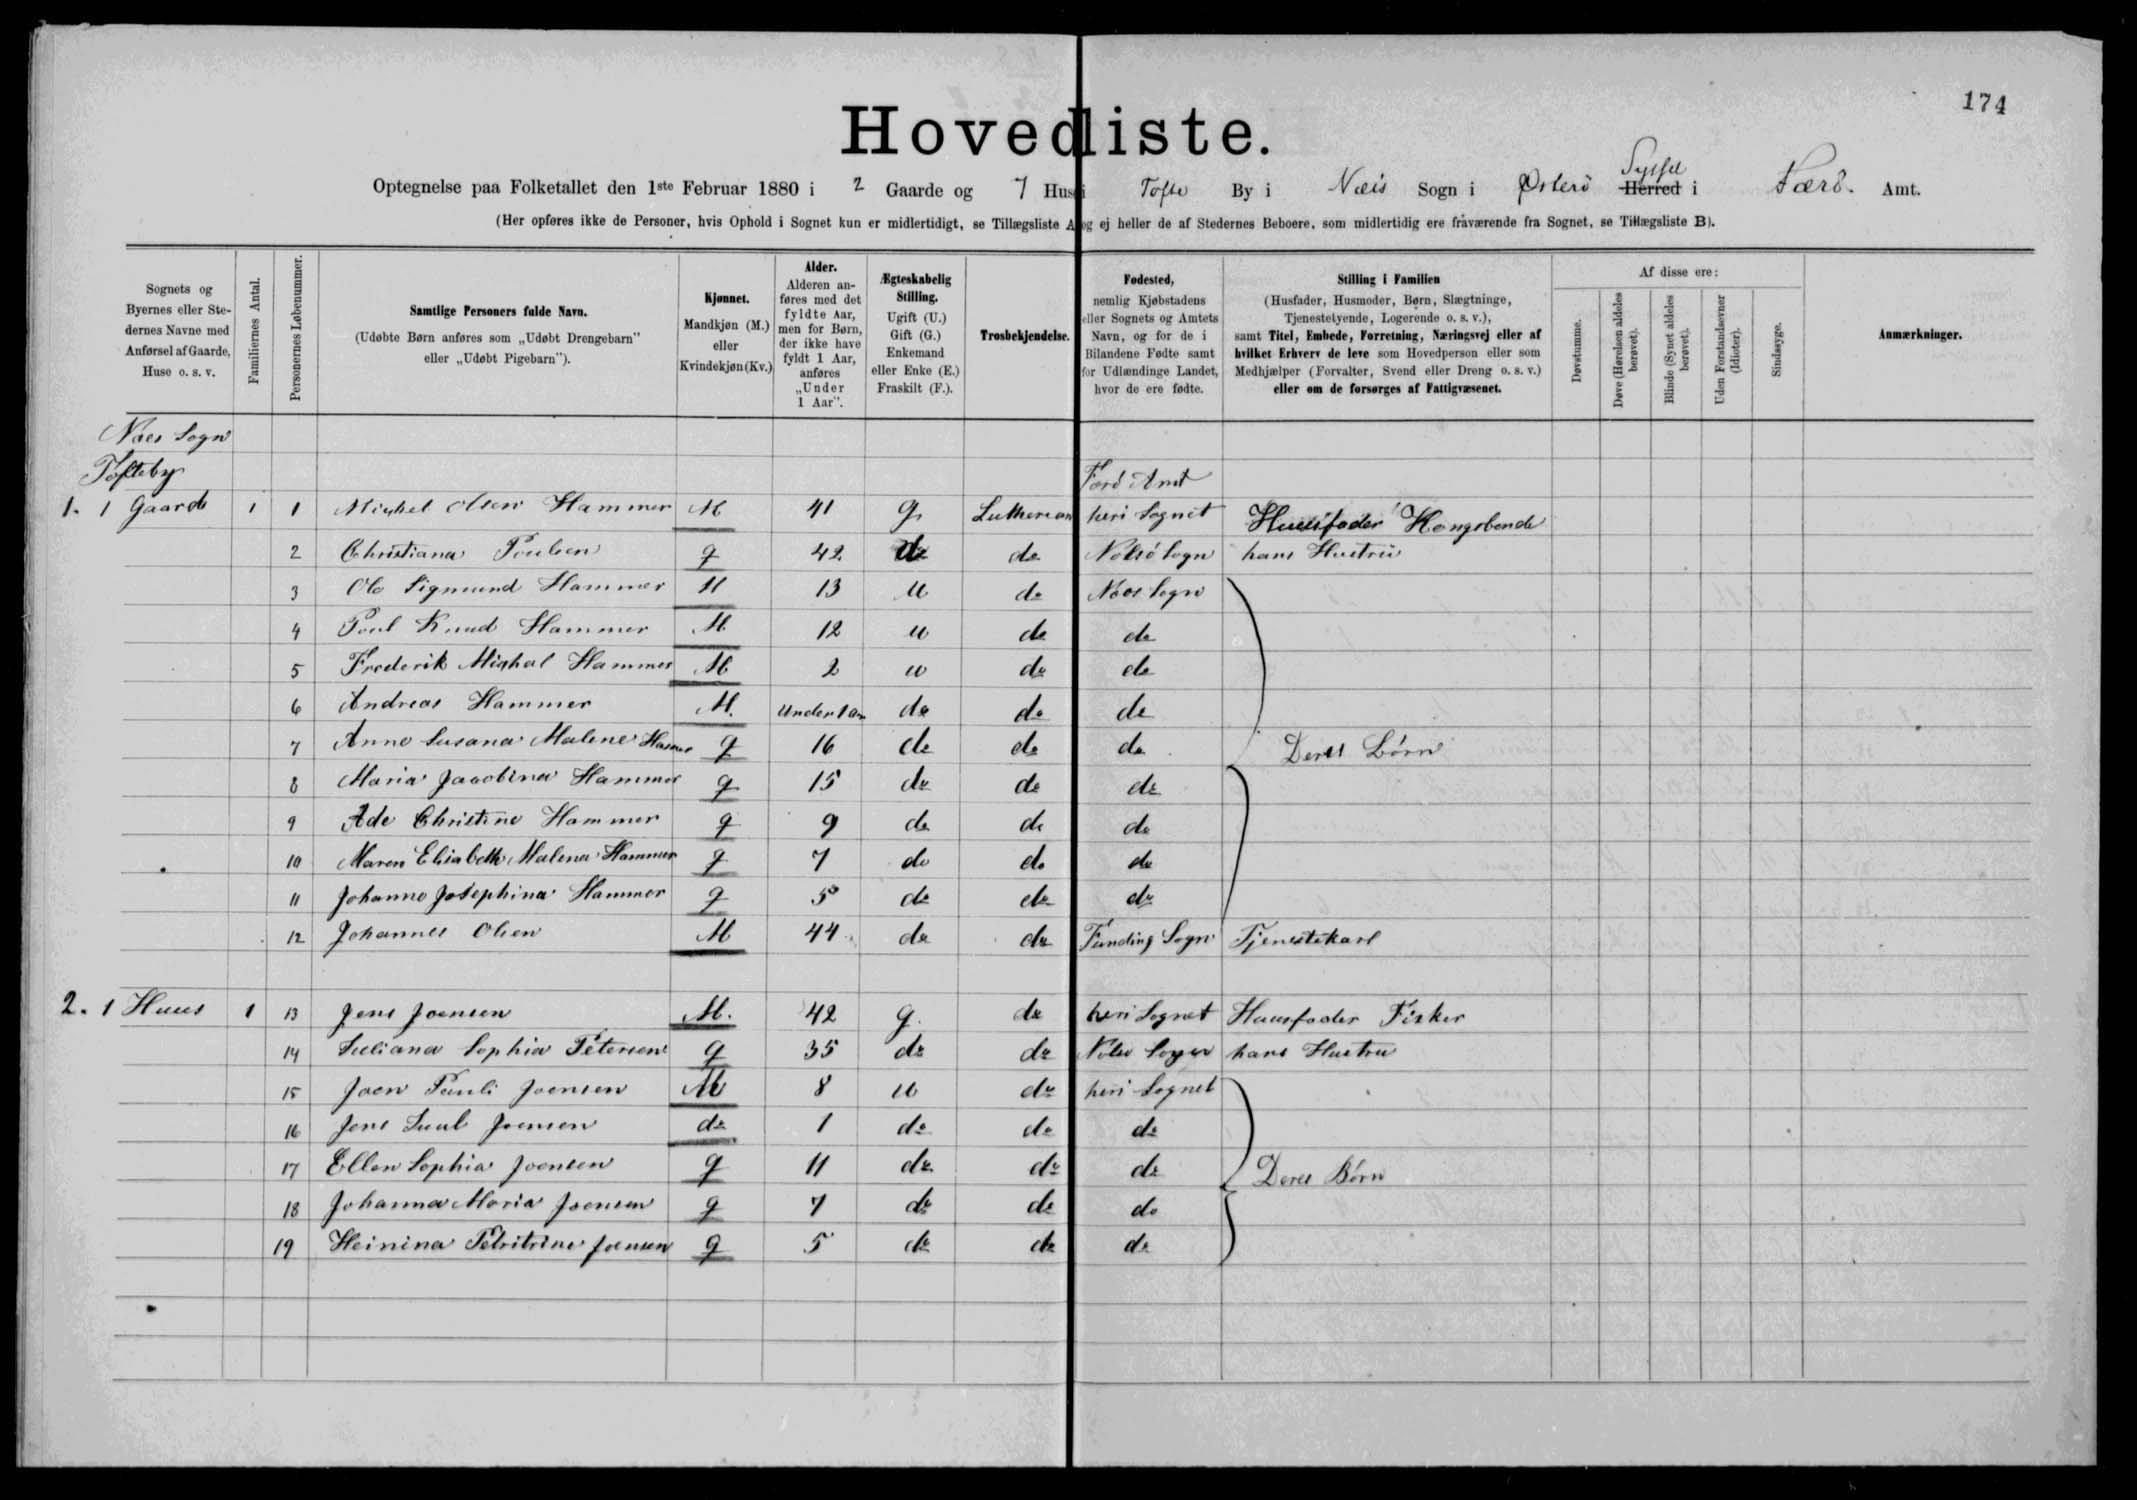 174
Hovedliste.
Optegnelse paa Folketallet den 1ste Februar 1880 i 2 Gaarde og 7 Huse i Tofte By i Næs Sogn i Østerö Herred Syssel i Færö. Amt.
(Her opføres ikke de Personer, hvis Ophold i Sognet kun er midlertidigt, se Tillægsliste A og ej heller de af Stedernes Beboere, som midlertidig ere fraværende fra Sognet, se Tillægsliste B).
Sognets og Byernes eller Stedernes Navne med Anførsel af Gaarde, Huse o. s. v.
Familiernes Antal.
Personernes Løbenummer.
Samtlige Personers fulde Navn.
(Udøbte Børn anføres som „Udøbt Drengebarn" eller „Udøbt Pigebarn").
Kjønnet.
Mandkjøn (M.) eller Kvindekjøn (Kv.)
Alder.
Alderen anføres med det fyldte Aar, men for Børn, der ikke have fyldt 1 Aar, anføres „Under 1 Aar".
Ægteskabelig Stilling.
Ugift (U.) Gift (G.) Enkemand eller Enke (E.) Fraskilt (F.).
Trosbekjendelse.
Fødested,
nemlig Kjøbstadens eller Sognets og Amtets Navn, og for de i Bilandene Fødte samt for Udlændinge Landet, hvor de ere fødte.
Stilling i Familien
(Husfader, Husmoder, Børn, Slægtninge, Tjenestetyende, Logerende o. s. v.),
samt Titel, Embede, Forretning, Næringsvej eller af hvilket Erhverv de leve som Hovedperson eller som Medhjælper (Forvalter, Svend eller Dreng o. s. v.) eller om de forsørges af Fattigvæsenet.
Af disse ere:
Døvstumme.
Døve (Hørelsen aldeles berøvet).
Blinde (Synet aldeles berøvet).
Uden Forstandsevner (Idioter).
Sindssyge.
Anmærkninger.
Næs Sogn
Tofteby
Færö Amt
1. 1 Gaard 1 1 Michel Olsen Hammer M 41 g Lutheran heri Sognet Huusfader Kongsbonde
2 Christiana Poulsen q 42 do do Nolsö Sogn hans Hustru
3 Ole Sigmund Hammer M 13 u do Næs Sogn
4 Poul Knud Hammer M 12 u do do
5 Frederik Mighal Hammer M 2 u do do
6 Andreas Hammer M. Under 1 Aar do do do
7 Anne Susana Malene Hammer q 16 do do do Deres Börn
8 Maria Jacobina Hammer q 15 do do do
9 Ade Christine Hammer q 9 do do do
10 Maren Elisabeth Malena Hammer q 7 do do do
11 Johanne Josephina Hammer q 5 do do do
12 Johannes Olsen M 44 do do Funding Sogn Tjenestekarl
2. 1 Huus 1 13 Jens Joensen M. 42 g. do heri Sognet Huusfader Fisker
14 Juliana Sophia Petersen q 35 do do Nolsö Sogn hans Hustru
15 Joen Pauli Joensen M 8 u do heri Sognet
16 Jens Juul Joensen do 1 do do do
17 Ellen Sophia Joensen q 11 do do do Deres Börn
18 Johanna Maria Joensen q 7 do do do
19 Heinina Petritrine Joensen q 5 do do do